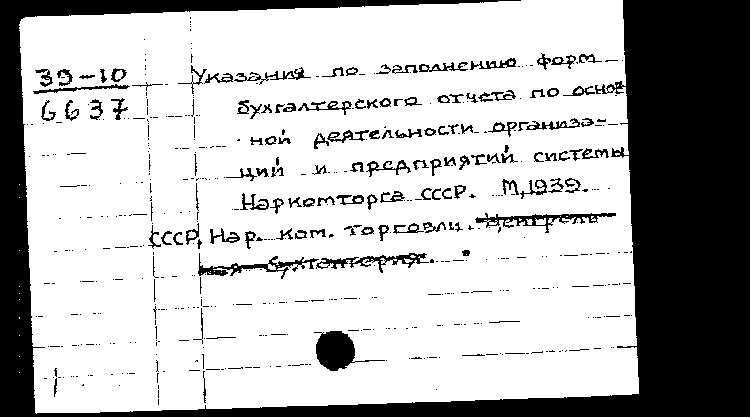 39-10 Указания по заполнению форм
6637 бухгалтерского отчета по основ-
ной деятельности организа-
ций и предприятий системы
Наркомторга СССР. М, 1939.
СССР, Нар. ком. торговли. Централь
ная бухгалтерия.